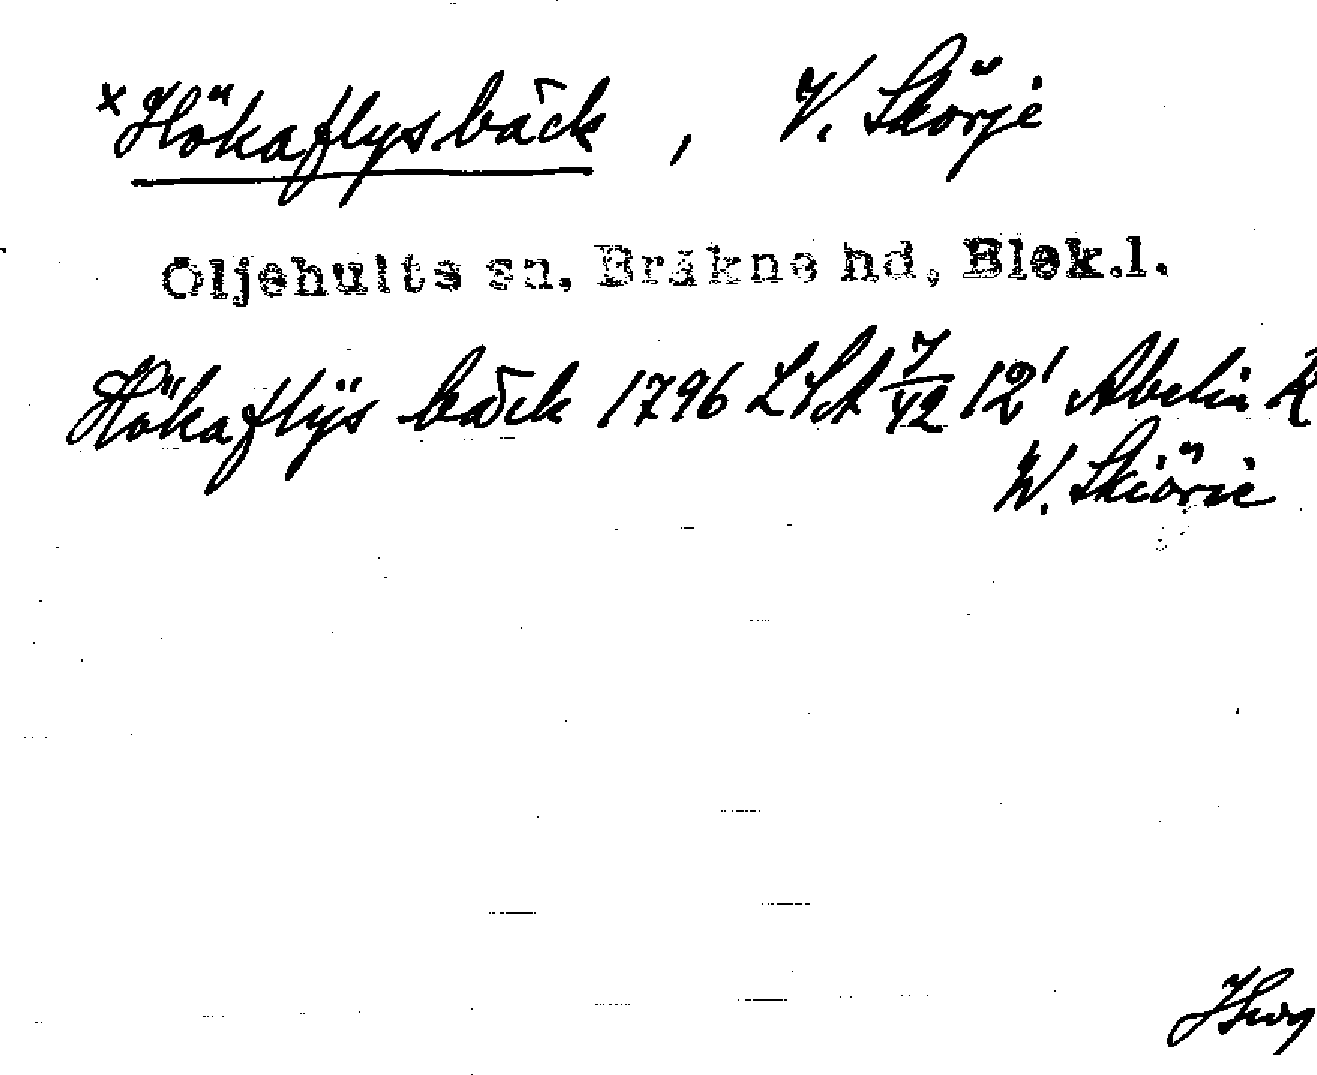 ×Hökaflysbäck, V. Skörje
Öljehults sn. Bräkne hd, Blek.l.
Hökaflÿs bäck 1796 LSA 7/V2 12' Abelin K
W. Skiörie